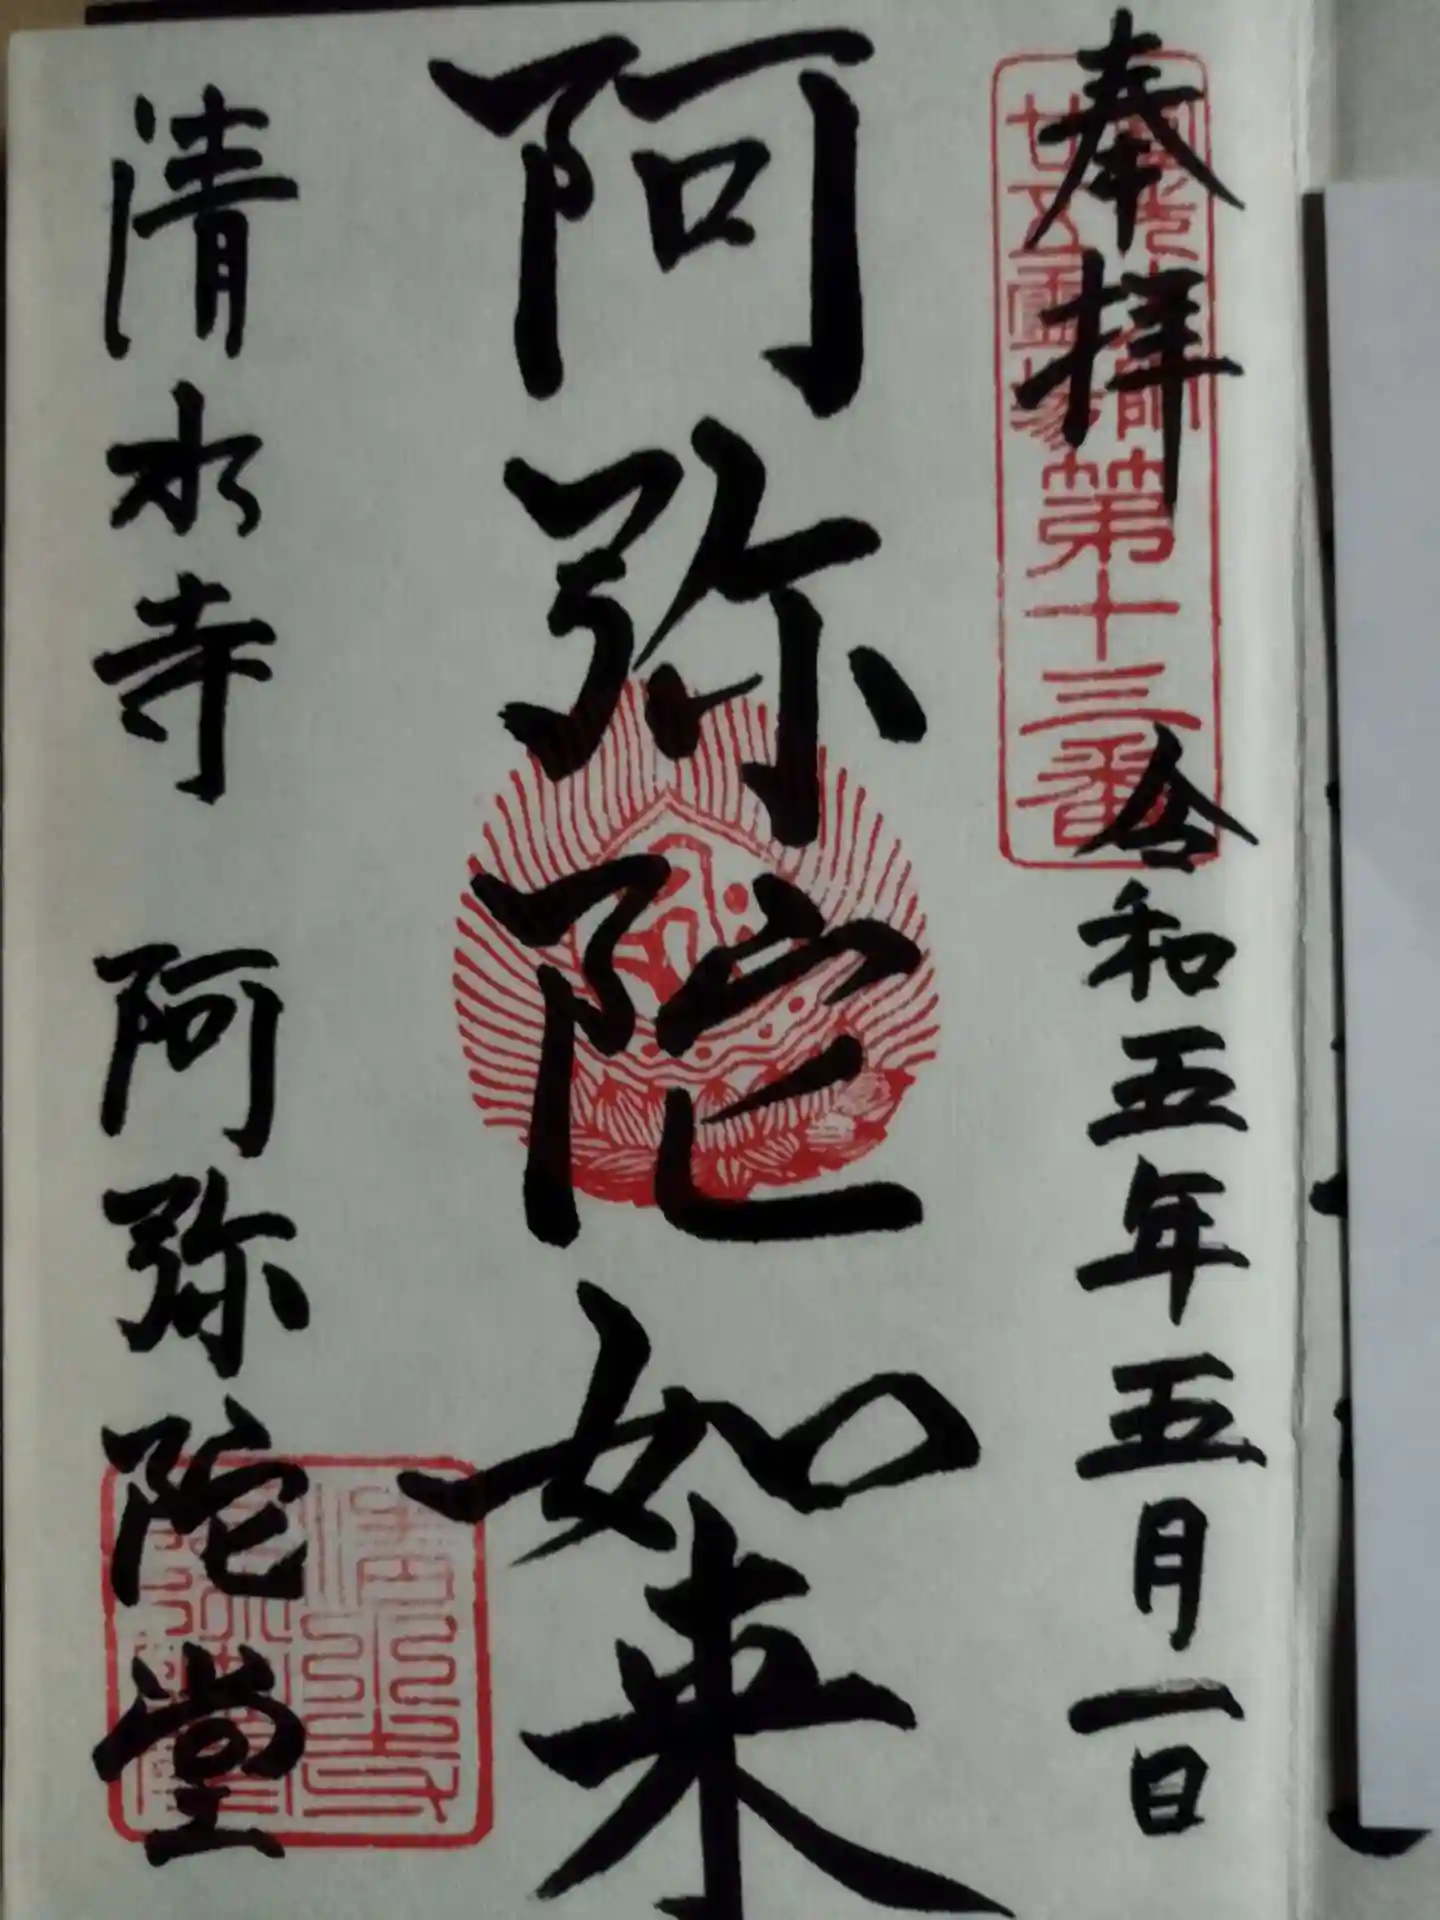 奉拝
令和五年五月一日
第十三番
廿五霊場
阿弥陀如来
清水寺 阿弥陀堂